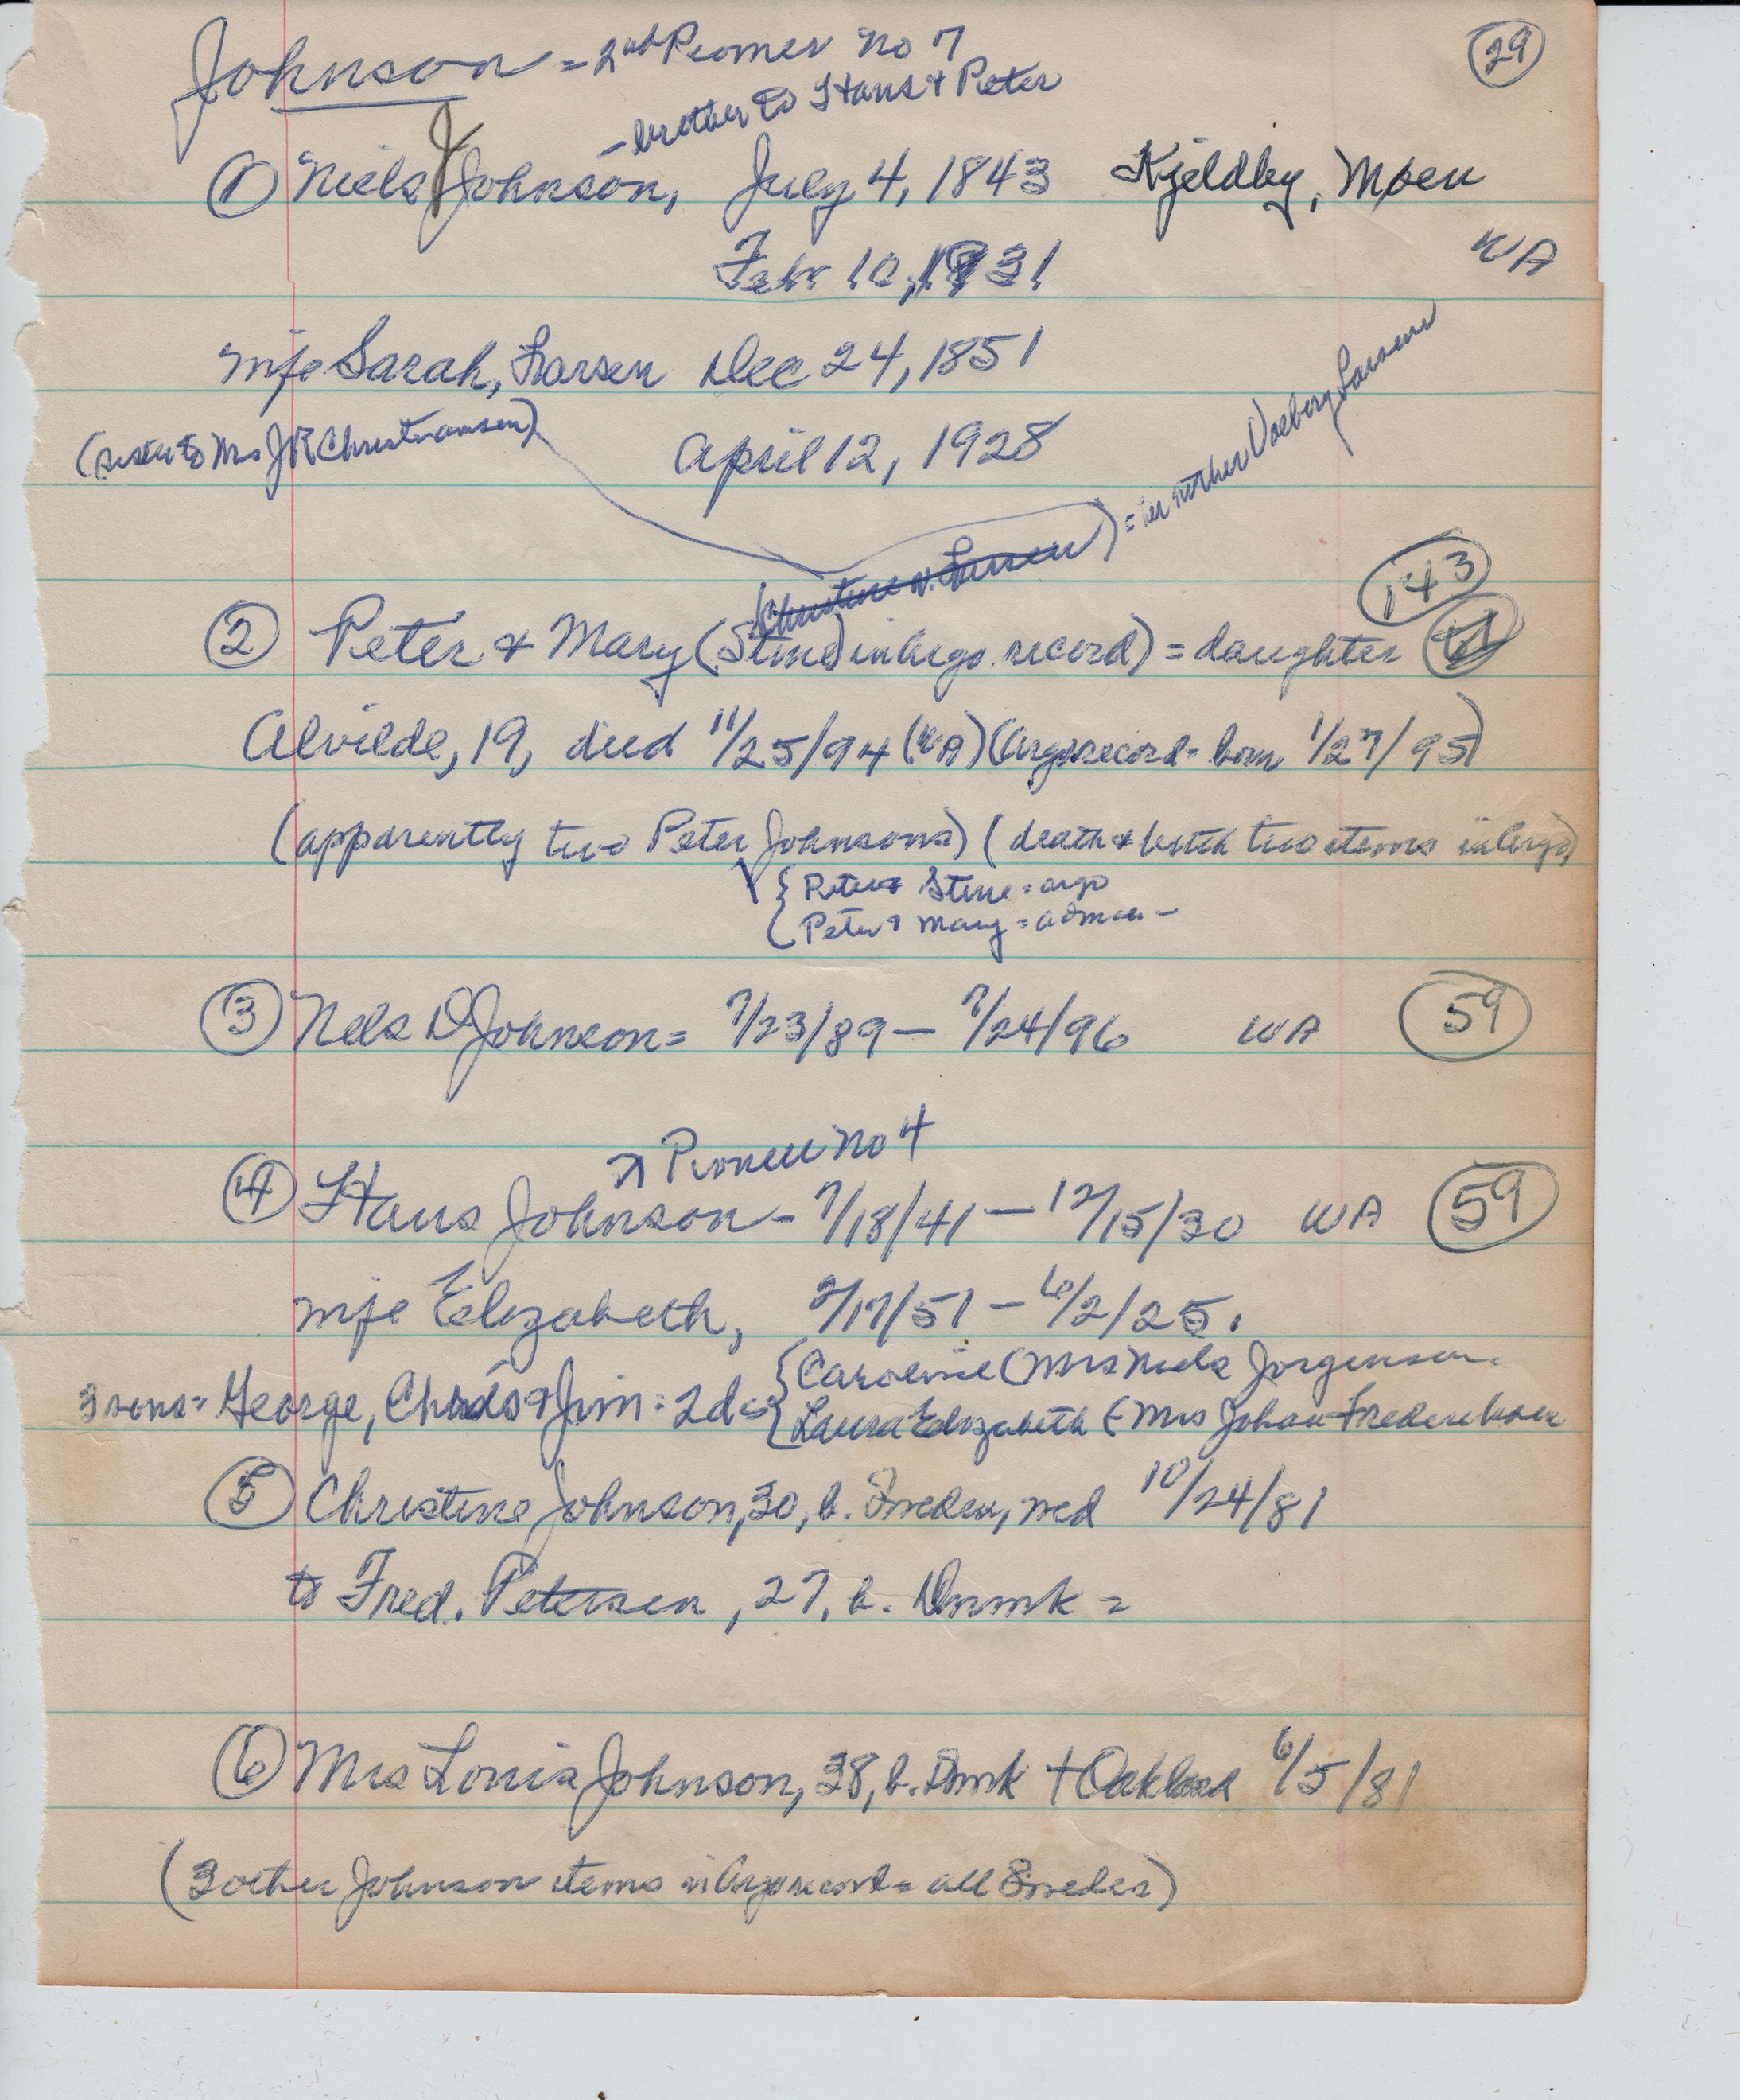 Johnson = 2nd Pioneer No 7
29
- brother to Hans & Peter
① Niels J Johnson, July 4, 1843 Kjeldby, Moen
Febr 10, 1931
WA
wife Sarah, Larsen Dec 24, 1851
(sister to Mrs J R Christiansen)
April 12, 1928
(Christine H. Larsen) = her mother Larsen
143
② Peter & Mary (Stine) in Argo record) = daughter
Alvilde, 19, died 11/25/94 (WA) (Argo record = born 1/27/95)
(apparently two Peter Johnsons) (death & birth two items in Argo)
{ Peter & Stine = Argo
Peter & Mary =
③ Nels D Johnson = 7/23/89 - 7/24/96 WA 59
Pioneer No 4
④ Hans Johnson - 7/18/41 - 12/15/30 WA 59
wife Elizabeth, 2/17/51 - 6/2/25.
3 sons = George, Chas & Jim = 2 d = { Caroline (Mrs Niels Jorgensen
Laura Elizabeth (= Mrs Johan Frederiksen
⑤ Christine Johnson, 30, b. Sweden, wed 10/24/81
to Fred. Petersen, 27, b. Dnmk =
⑥ Mrs Louis Johnson, 38, b. Dnmk + Oakland 6/5/81
(3 other Johnson items in Argo record = all Swedes)